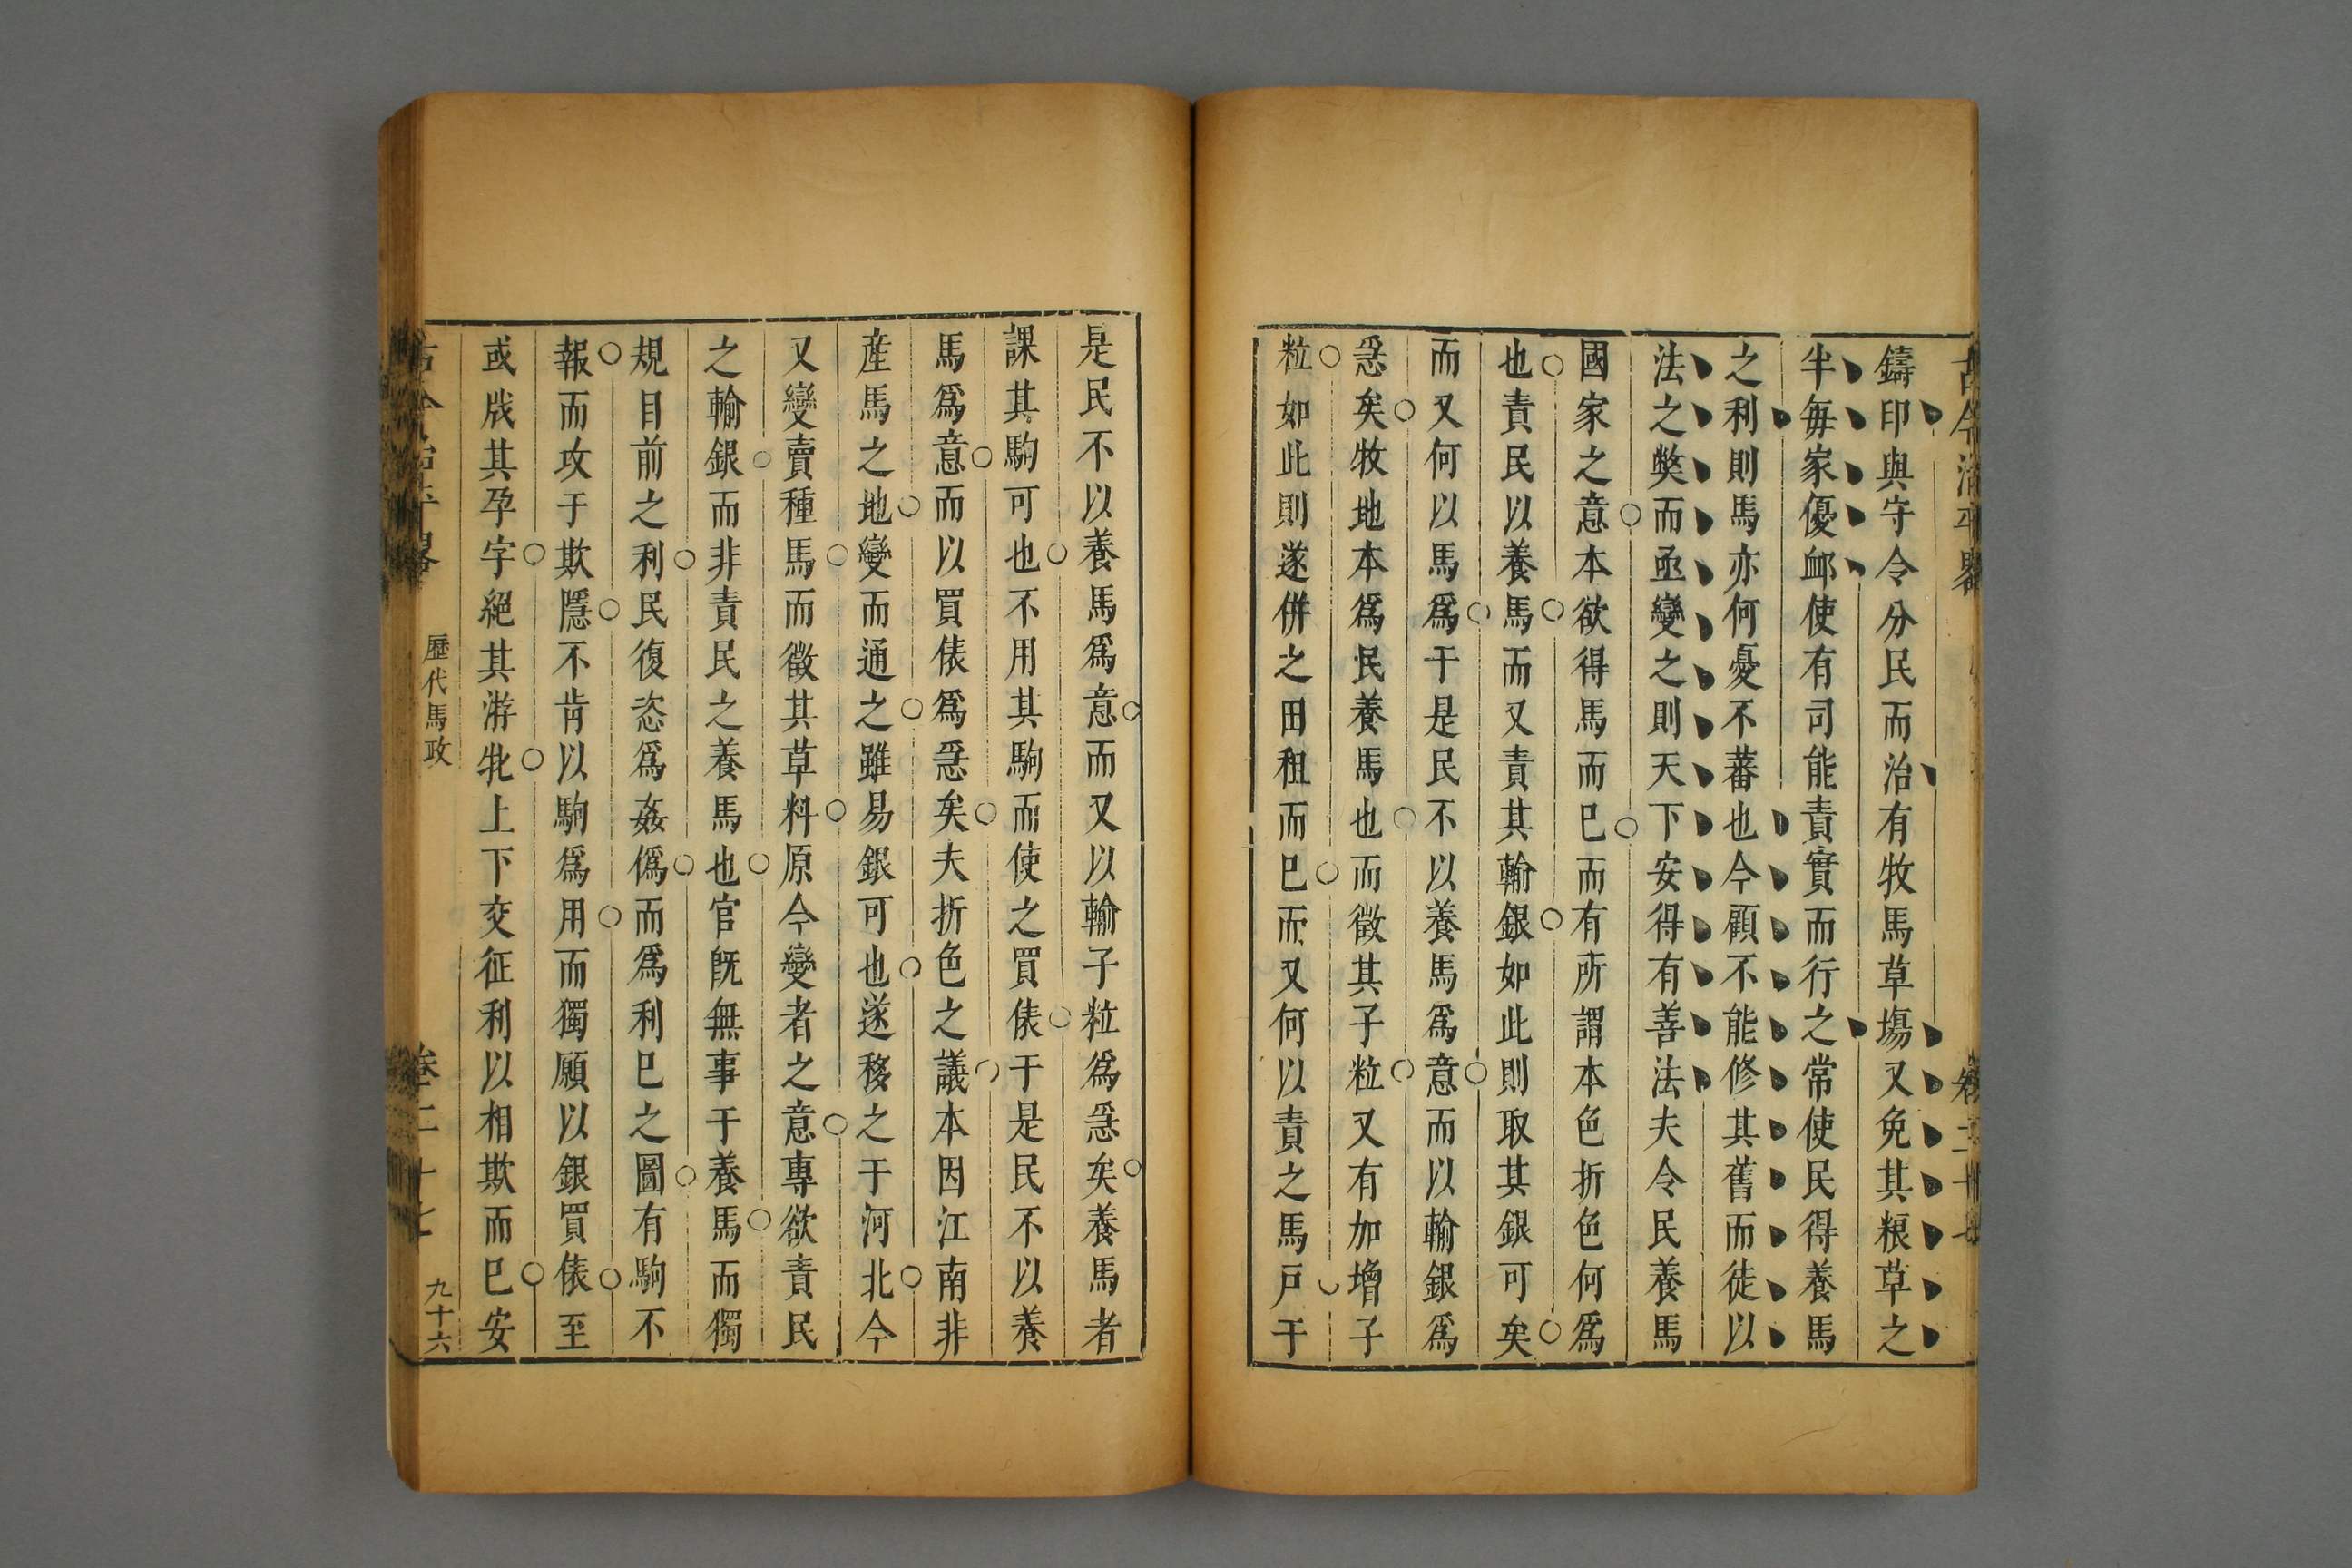 鑄印與守令分民而治有牧馬草塲又免其粮草之
半每家優䘏使有司能責實而行之常使民得養馬
之利則馬亦何憂不蕃也今顧不能修其舊而徒以
法之獘而亟變之則天下安得有善法夫令民養馬
國家之意本欲得馬而巳而有所謂本色折色何爲
也責民以養馬而又責其輸銀如此則取其銀可矣
而又何以馬爲于是民不以養馬爲意而以輸銀爲
㤂矣牧地本爲民養馬也而徵其子粒又有加增子
粒如此則遂併之田租而巳而又何以責之馬戶于
是民不以養馬爲意而又以輸子粒爲㤂矣養馬者
課其駒可也不用其駒而使之買俵于是民不以養
馬爲意而以買俵爲㤂矣夫折色之議本因江南非
産馬之地變而通之雖易銀可也遂移之于河北今
又變賣種馬而徵其草料原今變者之意專欲責民
之輸銀而非責民之養馬也官旣無事于養馬而獨
規目前之利民復恣爲姦僞而爲利巳之圖有駒不
報而攻于欺隱不肯以駒爲用而獨願以銀買俵至
或戕其孕字絕其游牝上下交征利以相欺而巳安
歷代馬政
卷二十七
九十六